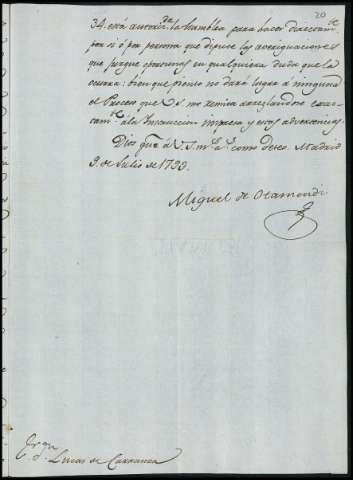 20
34. está autoriz.da la Asamblea para hacer directam.te
por sí ó por persona que dipute las averiguaciones
que juzgue oportunas en qualquiera duda que la
ocurra: bien que pienso no dará lugar á ninguna
el Proceso que V.S. me remita arreglandose exac-
tam.te á la Instruccion impresa y estas advertencias.
Dios gue á V.S. m.s a.s como deseo. Madrid
9. de Julio de 1793.
Miguel de Otamendi
S.or
D.n Lucas de Carranza